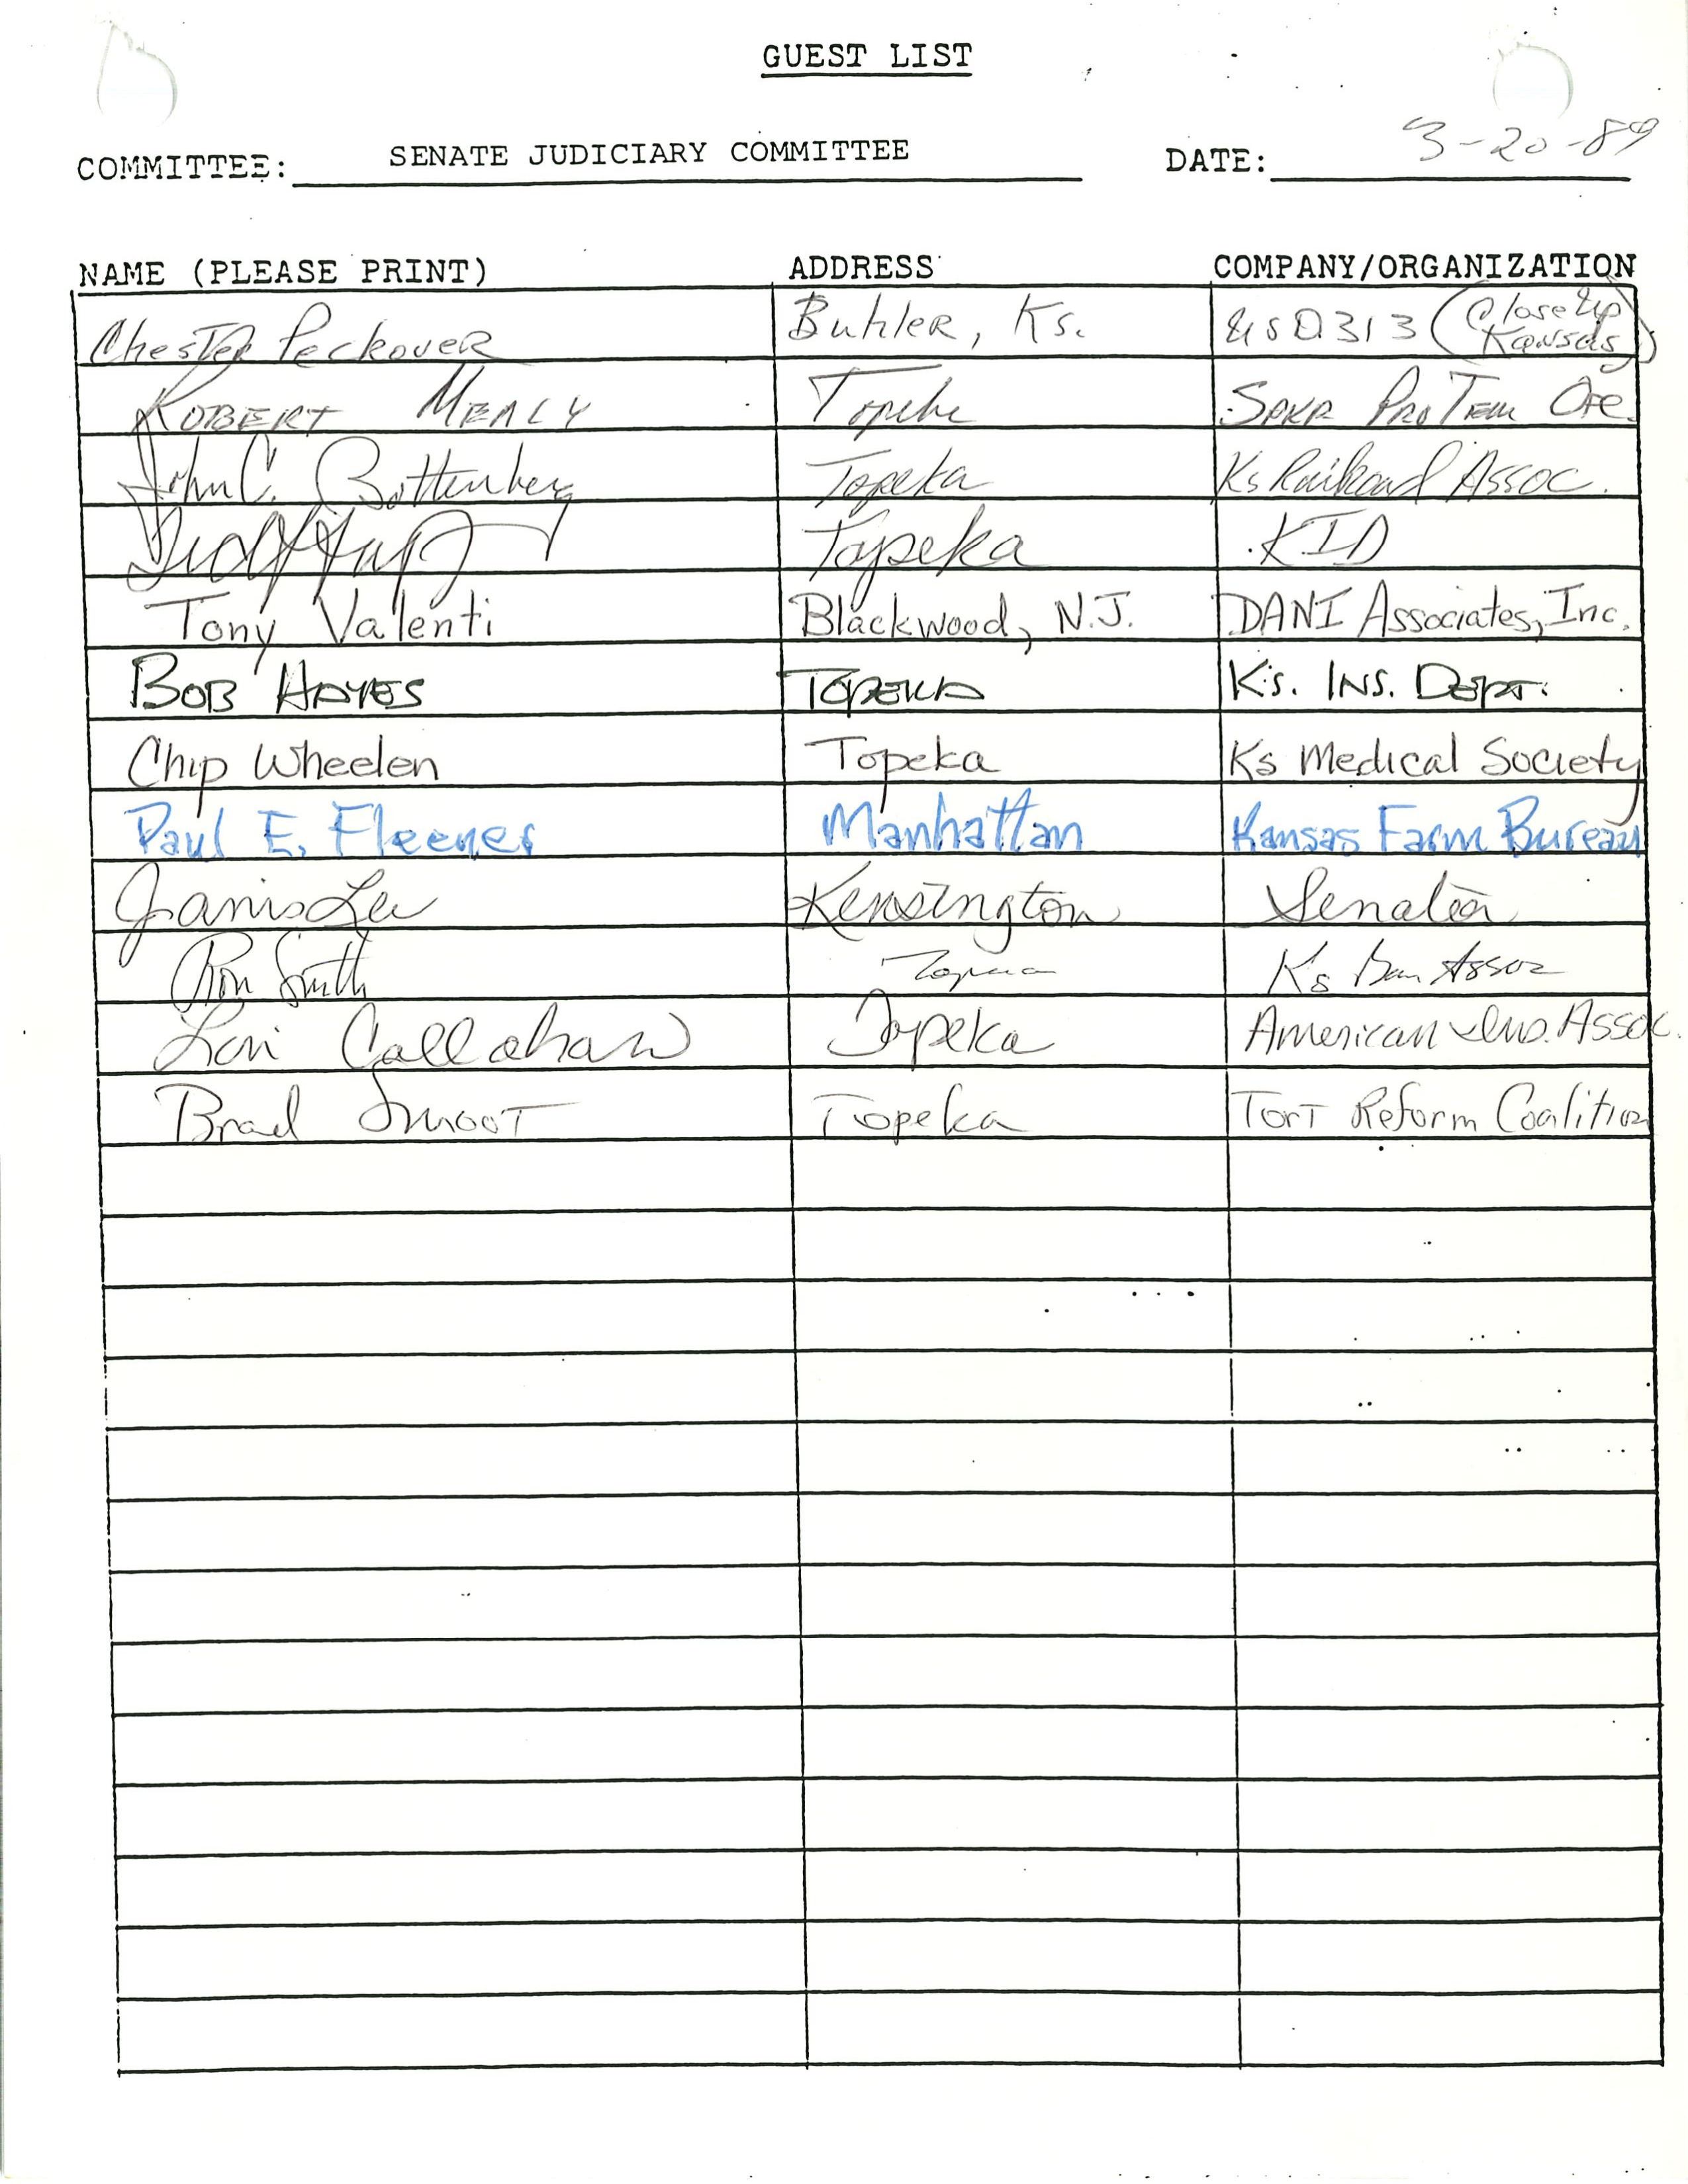 GUEST LIST
COMMITTEE: SENATE JUDICIARY COMMITTEE DATE: 3-20-89
NAME (PLEASE PRINT) ADDRESS COMPANY/ORGANIZATION
Chester Peckover Buhler, Ks. USD 313 (Close Up Kansas)
ROBERT MEALY Topeka SPKR PRO TEM OFC.
John C. Bottenberg Topeka Ks Railroad Assoc.
Topeka KID
Tony Valenti Blackwood, N.J. DANI Associates, Inc.
BOB HAYES TOPEKA Ks. INS. DEPT.
Chip Wheelen Topeka Ks Medical Society
Paul E. Fleener Manhattan Kansas Farm Bureau
Janis Lee Kensington Senator
Ron Smith Topeka Ks Bar Assoc
Lori Callahan Topeka American Ins. Assoc.
Brad Smoot Topeka Tort Reform Coalition